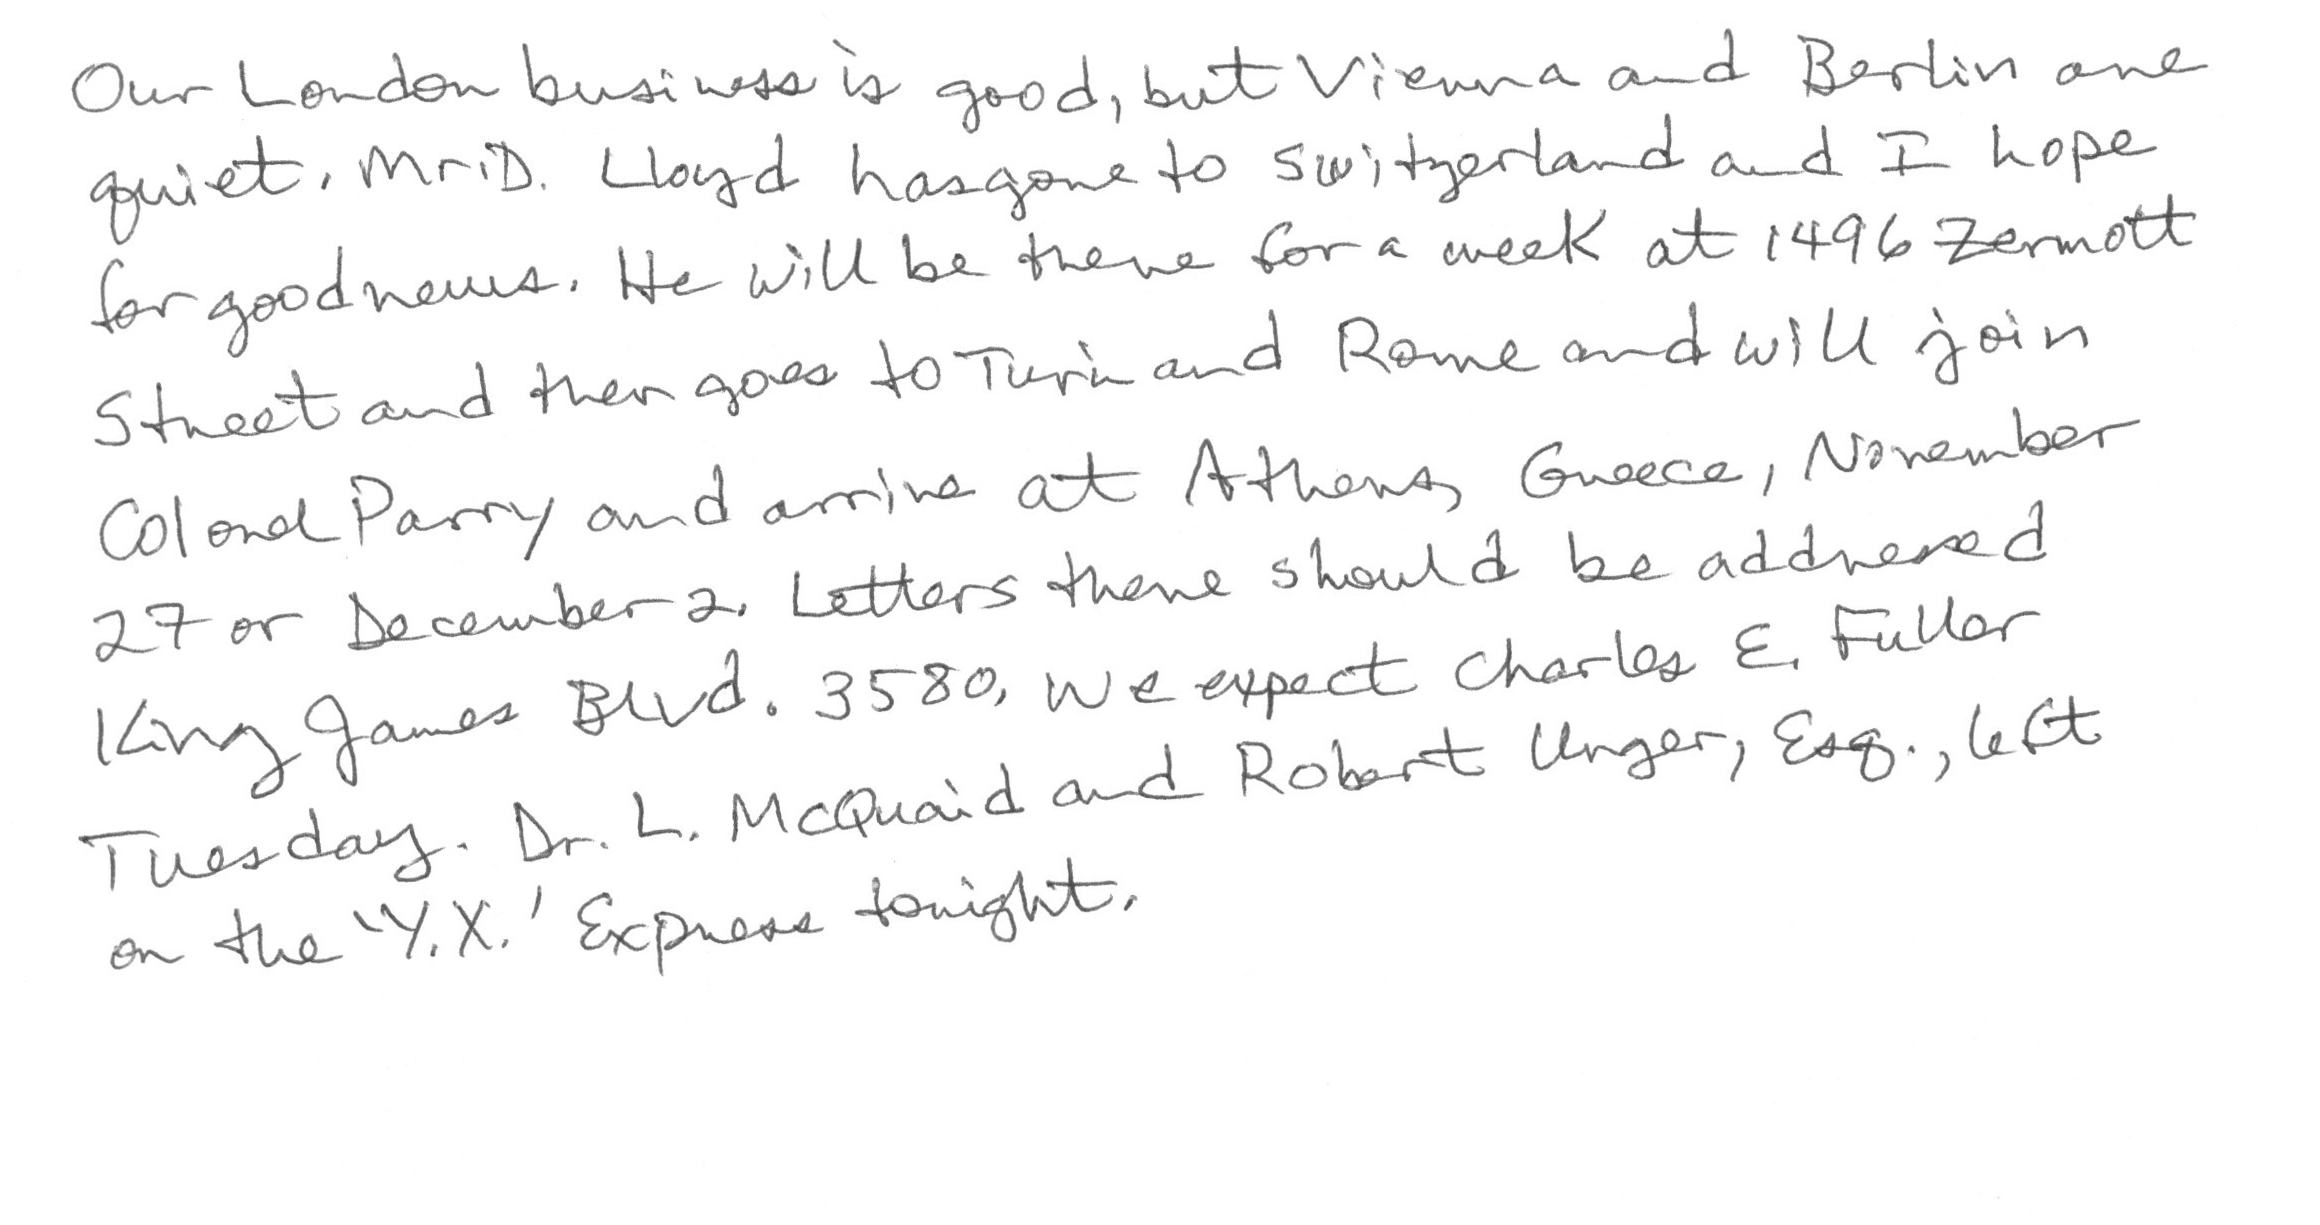 Our London business is good, but Vienna and Berlin are
quiet. Mr. D. Lloyd has gone to Switzerland and I hope
for good news. He will be there for a week at 1496 Zermott
Street and then goes to Turin and Rome and will join
Colonel Parry and arrive at Athens, Greece, November
27 or December 2. Letters there should be addressed
King James Blvd. 3580. We expect Charles E. Fuller
Tuesday. Dr. L. McQuaid and Robert Unger, Esq., left
on the 'Y.X.' Express tonight.